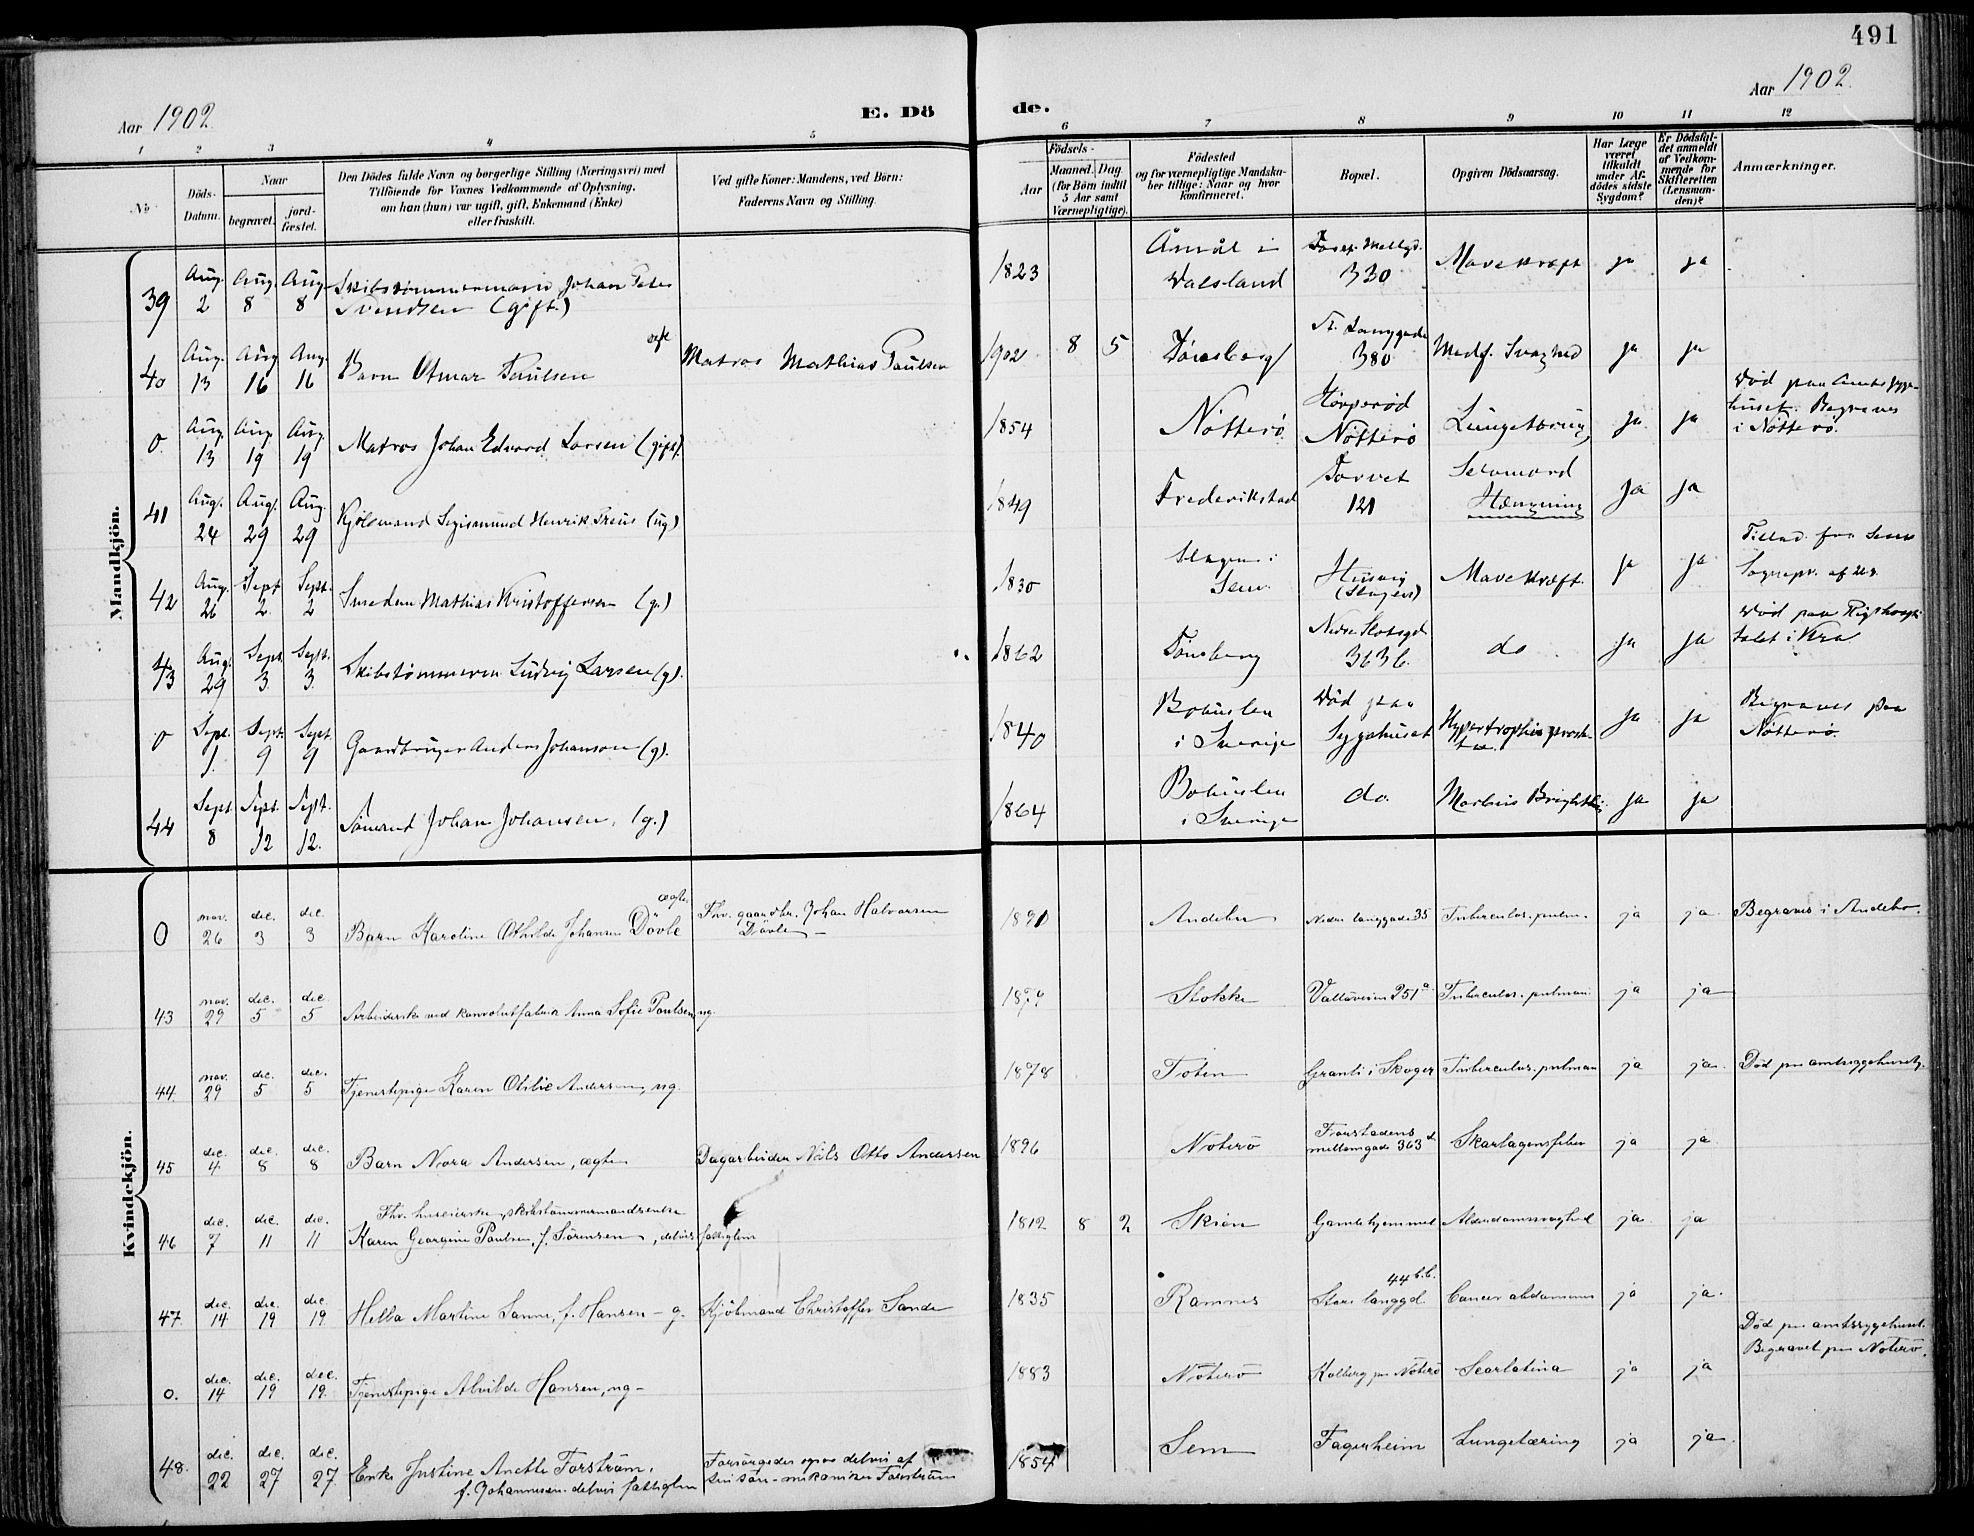 491
Aar 1902.
Aar 1902.
E. Dö
de.
1 2 3 4 5
6 7 8 9 10 11 12
No
Döds-
Datum.
Naar
begravet.
jord-
fæstet.
Den Dödes fulde Navn og borgerlige Stilling (Næringsvei) med
Tilföiende for Voxnes Vedkommende af Oplysning,
om han (hun) var ugift, gift, Enkemand (Enke)
eller fraskilt.
Ved gifte Koner: Mandens, ved Börn:
Faderens Navn og Stilling.
Födsels-
Aar
Maaned. Dag
(for Börn indtil
5 Aar samt
Værnepligtige).
Födested
og for værnepligtige Mandska-
ber tillige: Naar og hvor
konfirmeret.
Bopæl.
Opgiven Dödsaarsag.
Har Læge
været
tilkaldt
under Af-
dödes sidste
Sygdom?
Er Dödsfal-
det anmeldt
af Vedkom-
mende for
Skifteretten
(Lensman-
den)?
Anmærkninger.
Mandkjön.
39 Aug. 2 Aug. 8 Aug. 8 Skibstömmermand Johan Peter
Svendsen (gift.)
1823 Åmål i
Dalsland
330 Mavekræft ja ja
40 Aug. 13 Aug 16 Aug. 16 Barn Otmar Paulsen ægte
Matros Mathias Paulsen
1902 8 5 Tönsberg St. Langgade
380 Medf. Svaghed ja ja
0. Aug. 13 Aug. 19 Aug. 19 Matros Johan Edvard Larsen (gift).
1854 Nötterö Nötterö ja ja
Död paa Amtssyge-
huset. Begraves
i Nötterö.
41 Aug. 24 Aug. 29 Aug. 29 Kjölemand Henrik (ug)
1849 Frederikstad Torvet
121 Selvmord
Hængning ja ja
42 Aug. 26 Sept 2 Sept. 2 Mathias Kristoffersen (g.)
1830 Slagen i
Sem Husvig
(Slagen) Mavekræft. ja ja
43 Aug. 29 Sept. 3 Sept. 3. Skibstömmerm. Ludvig Larsen (g).
1862 Tönsberg Nedre Slotsgd
363 b. do ja ja
Död paa Rigshospi-
talet i Kra
0 Sept. 1. Sept. 9 Sept. 9 Gaardbruger Anders Johanson (g).
1840 Bohuslen
i Sverige Död paa
Sygehuset ja ja
Begraves paa
Nötterö.
44 Sept 8 Sept. 12 Sept. 12. Sömand Johan Johansen, (g.)
1864 Bohuslen
i Sverige do. Morbus Brightii ja ja
Kvindekjön.
0 nov. 26 dec. 3 dec. 3 Barn Karoline Othilde Johansen Dövle ægte
Fhv. gaardbr. Johan Halvorsen
Dövle
Andebu Nedre langgade 35 Tuberculos. pulm. ja ja Begraves i Andebo.
43 nov. 29 dec. 5 dec. 5 Arbeiderske ved Konvolutfabrik Anna Sofie Paulsen, ug.
Stokke Valløveien 251 a Tuberculos. pulmon. ja ja
44. nov. 29 dec. 5 dec. 5 Tjenestepige Karen Otilie Andersen, ug.
1878 Toten Granli i Skoger Tuberculos. pulmon ja ja. Död paa amtssygehuset.
45 dec. 4 dec. 8 dec. 8 Barn Nora Andersen, ægte
Dagarbeider Nils Otto Andersen
1896 Nöterö Fourstadens
mellemgade 363 d Skarlagensfeber ja ja
46 dec. 7 dec. 11 dec. 11 Fhv. huseierske, skibstömmermandsenke
Karen Georgine Paulsen, f. Sörensen, delvis fattiglem
1812 8 2 Skien Gamlehjemmet Alderdomssvaghed ja ja
47. dec. 14 dec. 19 dec. 19 Hella Martine Sanne, f. Hansen - g. Kjölmand Christoffer Sande
1835 Ramnes 44 b.b.
Store langgd. Cancer abdominis ja ja.
0. dec. 14 dec. 19 dec. 19. Tjenestepige Alvilde Hansen, ug-
1883 Nöterö Kolberg paa Nöterö Scarlatina ja ja
Död paa amtssygehuset.
Begravet paa Nöterö.
48. dec. 22 dec. 27 dec. 27. Enke Justine Anette Forström,
f. Johannesen. delvis fattiglem
Forsörgedes ogsaa delvis af
sin sön - mekaniker Forström
1854 Sem Fagerheim Lungetæring ja ja.